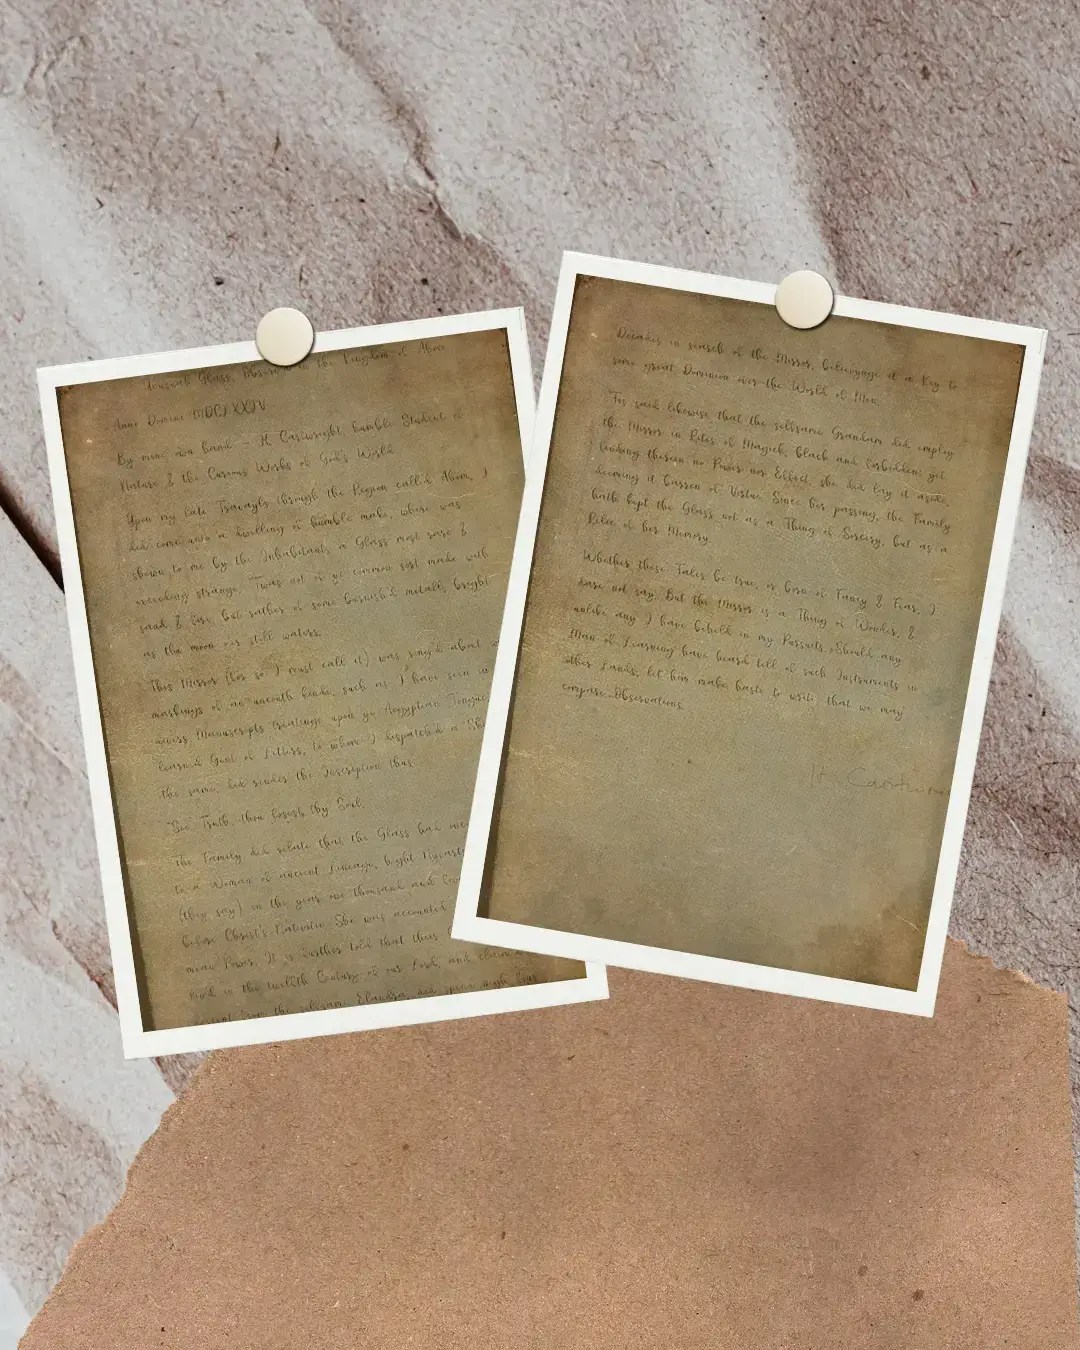 Glass, in the Kingdom of
Anno Domini
By mine own hand – H. Cartwright, humble Student of
Nature & the Curious Works of God's World
Upon my late Travayls through the Region call'd Abom, I
did come unto a dwelling of humble make, where was
shown to me by the Inhabitants a Glass most rare &
exceeding strange. 'Twas not of ye common sort made with
sand & fire, but rather of some burnish'd metall, bright
as the moon on still waters.
This Mirror (for so I must call it) was ring'd about
markings of an uncouth kinde, such as I have seen in
Manuscripts treatinge upon ye Aegyptian Tongue
learned Gent of Letters, to whom I dispatch'd a
the same, did render the Inscription thus:
"See Truth, thou losest thy Soul.
The Family did relate that the Glass had
to a Woman of ancient Lineage, hight
(they say) in the year one thousand and
before Christ's Nativitie. She was accounted
mean Power. It is further told that their
in the twelfth Century of our Lord, and
from the selfsame Elandra, did spend nigh four
Decades in search of the Mirror, believynge it a Key to
some great Dominion over the World of Men.
'Tis said likewise that the selfsame Grandam did employ
the Mirror in Rites of Magick, black and forbidden; yet
finding therein no Power nor Effect, she did lay it aside,
deeming it barren of Virtue. Since her passing, the Family
hath kept the Glass not as a Thing of Sorcery, but as a
Relic of her Memory.
Whether these Tales be true, or born of Fancy & Fear, I
dare not say. But the Mirror is a Thing of Wonder, &
unlike any I have beheld in my Pursuits. Should any
Man of Learning have heard tell of such Instruments in
other Lands, let him make haste to write, that we may
compare Observations.
H. Cartwr